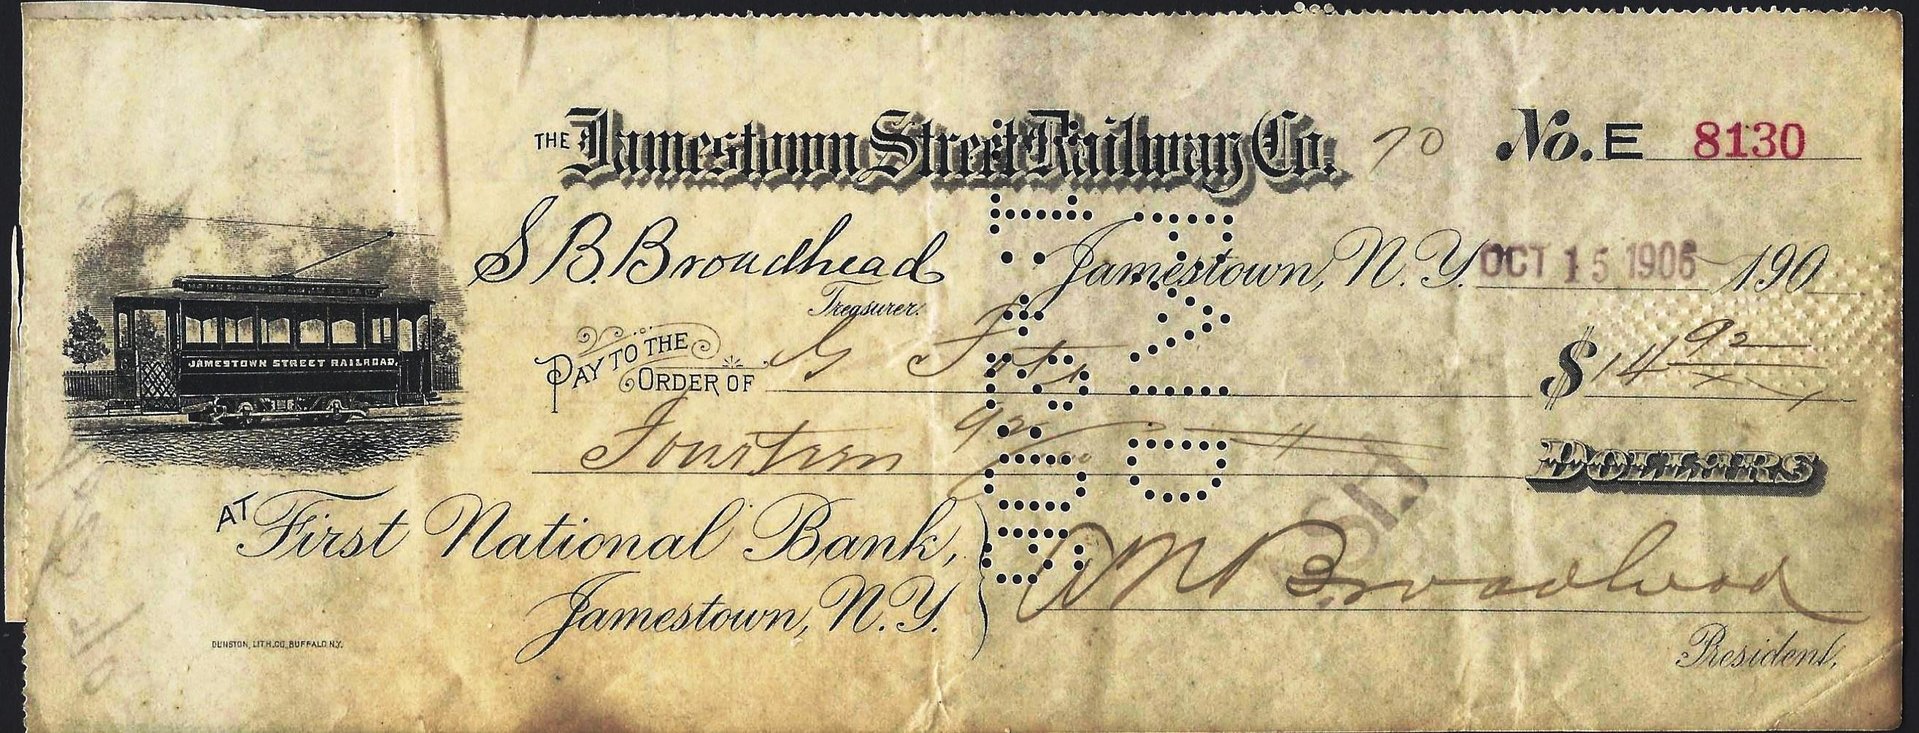 THE Jamestown Street Railway Co. 70 No. E 8130
S B. Broadhead Jamestown, N. Y. OCT 15 1906 190
Treasurer.
PAY TO THE ORDER OF G $14 92
JAMESTOWN STREET RAILROAD.
Fourteen 92 DOLLARS
AT First National Bank,
Jamestown, N. Y.
PAID
Broadhead
President.
DUNSTON, LITH. CO. BUFFALO N.Y.